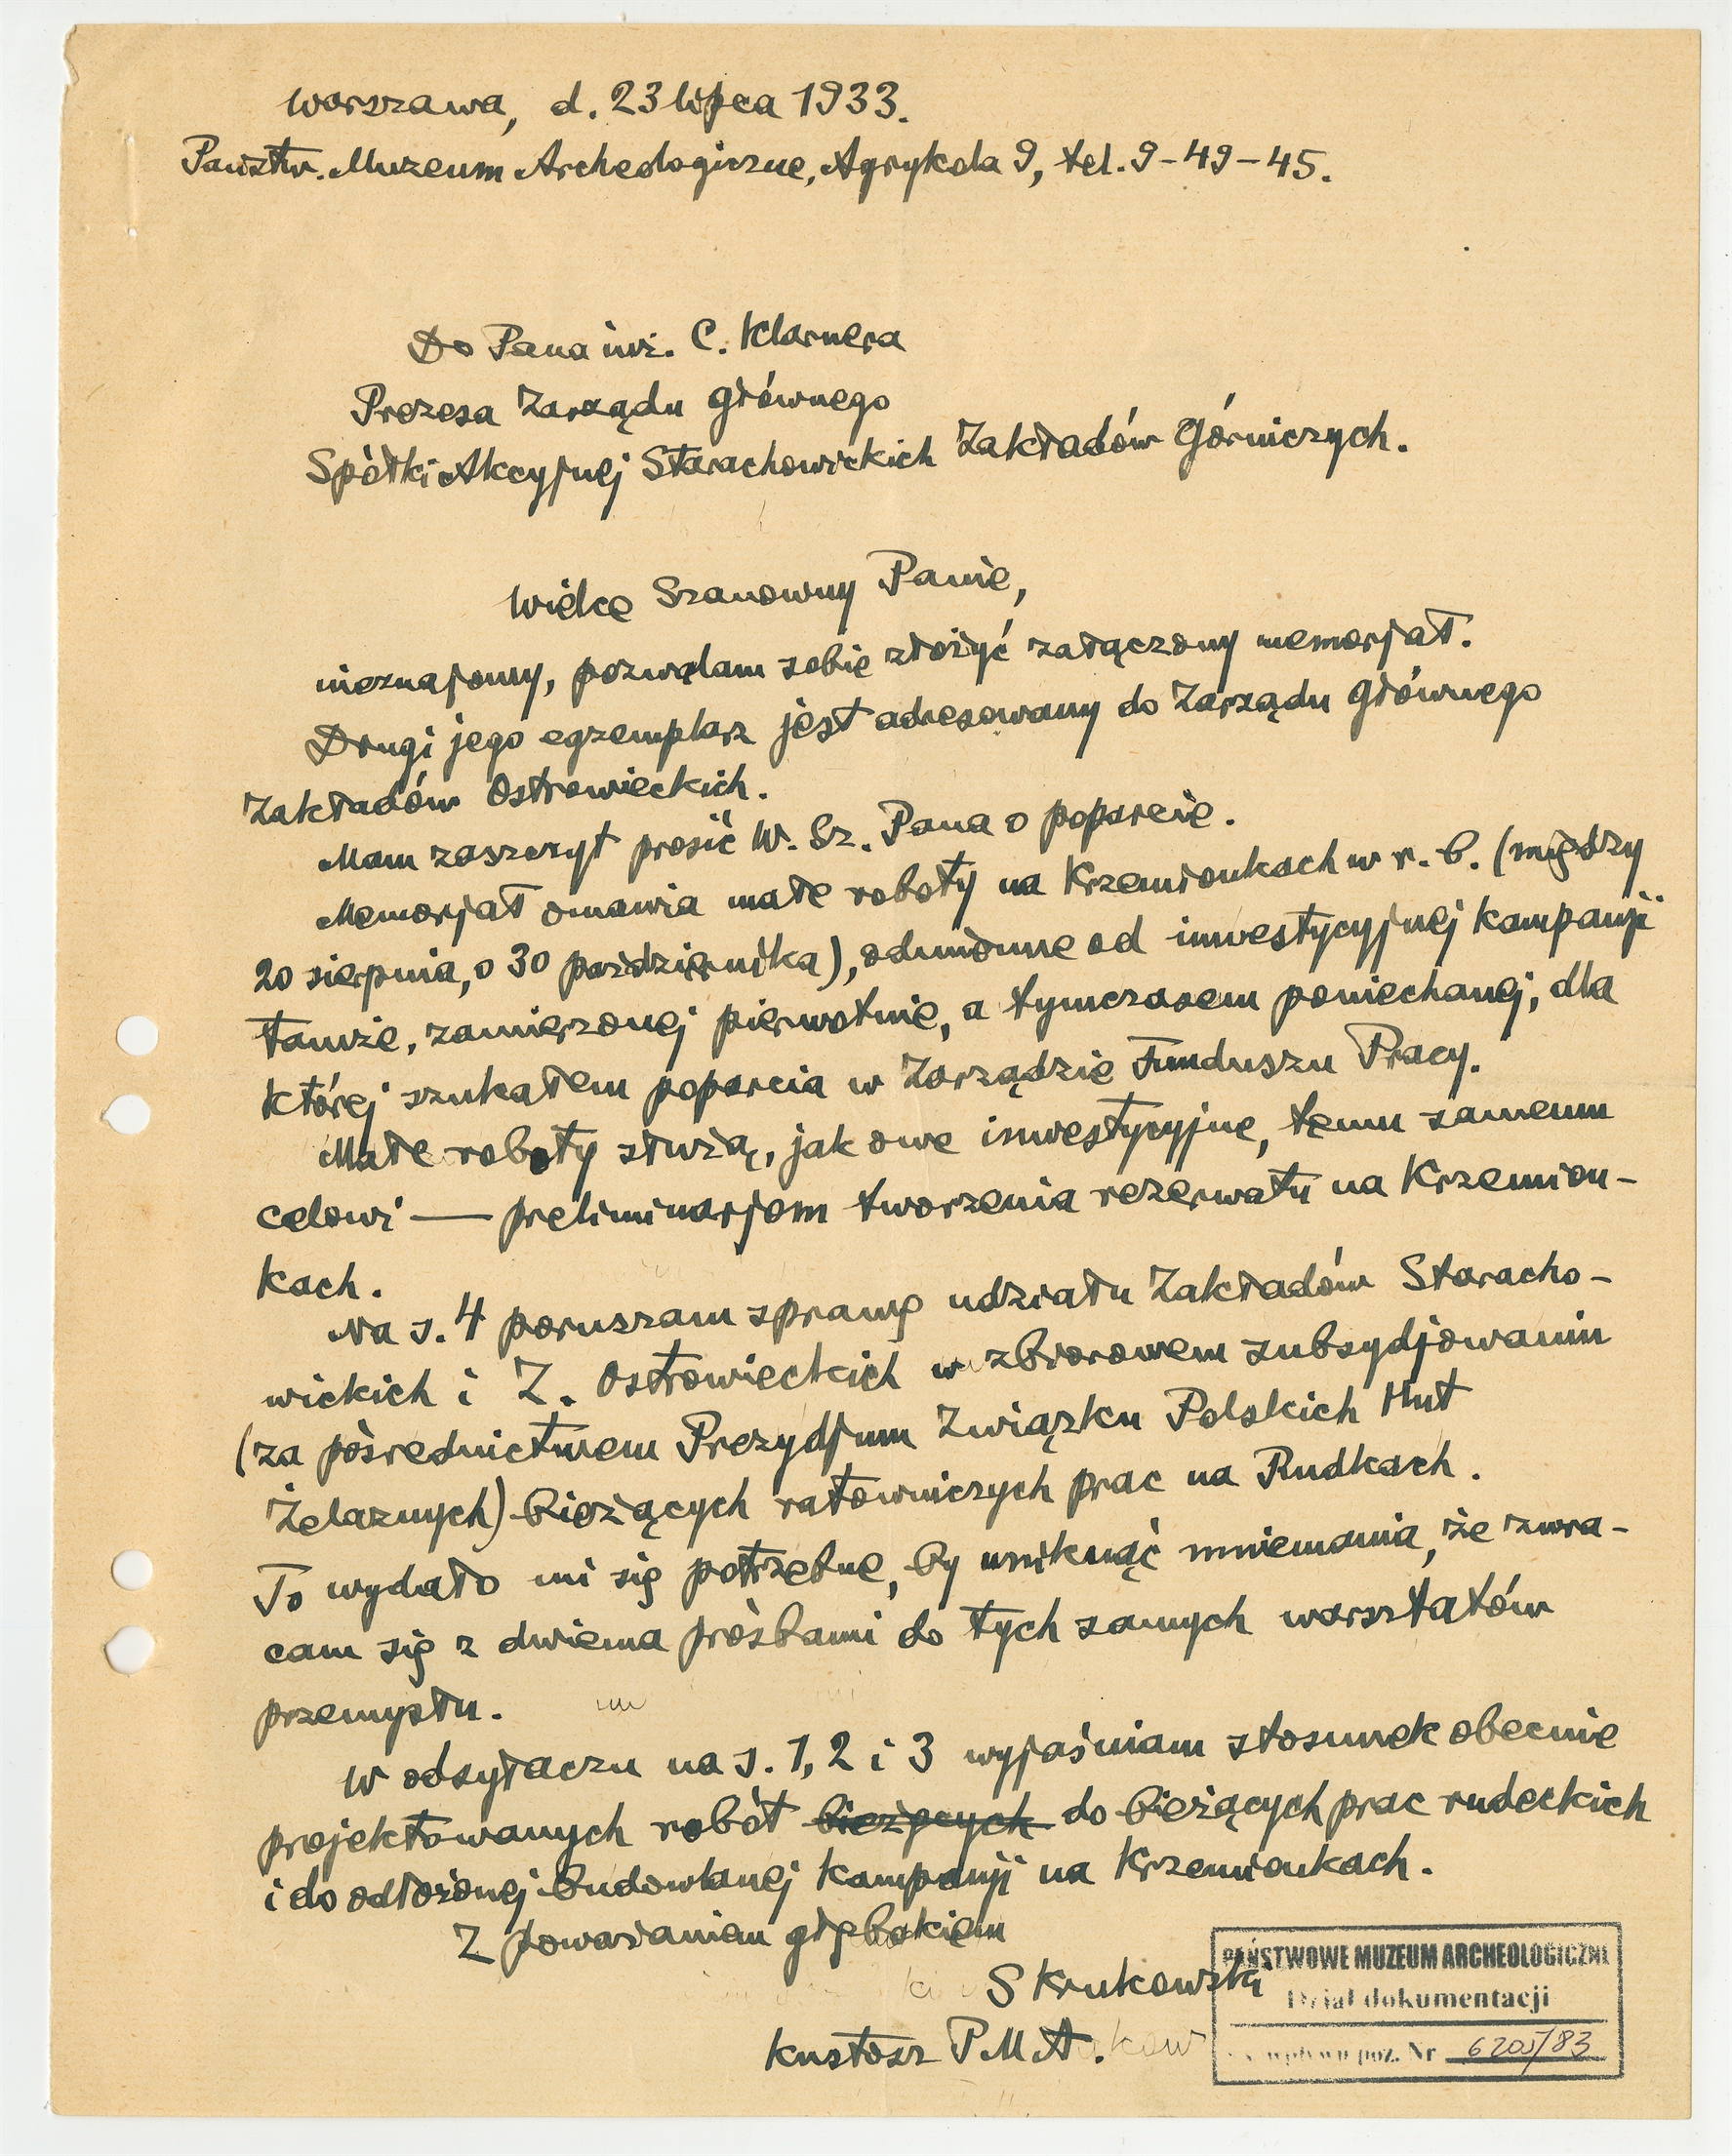 Warszawa, d. 23 lipca 1933.
Państw. Muzeum Archeologiczne, Agrykola 9, tel. 9-49-45.
Do Pana inż. C. Klarnera
Prezesa Zarządu Głównego
Spółki Akcyjnej Starachowickich Zakładów Górniczych.
Wielce Szanowny Panie,
nieznajomy, pozwalam sobie złożyć załączony memorjał.
Drugi jego egzemplarz jest adresowany do Zarządu Głównego
Zakładów Ostrowieckich.
Mam zaszczyt prosić W. Sz. Pana o poparcie.
Memorjał omawia małe roboty na Krzemionkach w r. b. (między
20 sierpnia, o 30 października), odmienne od inwestycyjnej kampanji
tamże, zamierzonej pierwotnie, a tymczasem poniechanej, dla
której szukałem poparcia w Zarządzie Funduszu Pracy.
Małe roboty służą, jak owe inwestycyjne, temu samemu
celowi — preliminarjom tworzenia rezerwatu na Krzemion-
kach.
Na s. 4 poruszam sprawę udziału Zakładów Staracho-
wickich i Z. Ostrowieckich w zbiorowem subsydjowaniu
(za pośrednictwem Prezydjum Związku Polskich Hut
Żelaznych) bieżących ratowniczych prac na Rudkach.
To wydało mi się potrzebne, by uniknąć mniemania, że zwra-
cam się z dwiema prośbami do tych samych warsztatów
przemysłu.
W odsyłaczu na s. 1, 2 i 3 wyjaśniam stosunek obecnie
projektowanych robót bieżących do bieżących prac rudeckich
i do odłożonej budowlanej kampanji na Krzemionkach.
Z poważaniem głębokiem
S Krukowski
kustosz P M A.
PAŃSTWOWE MUZEUM ARCHEOLOGICZNE
Dział dokumentacji
wpływu poz. Nr 6205/83